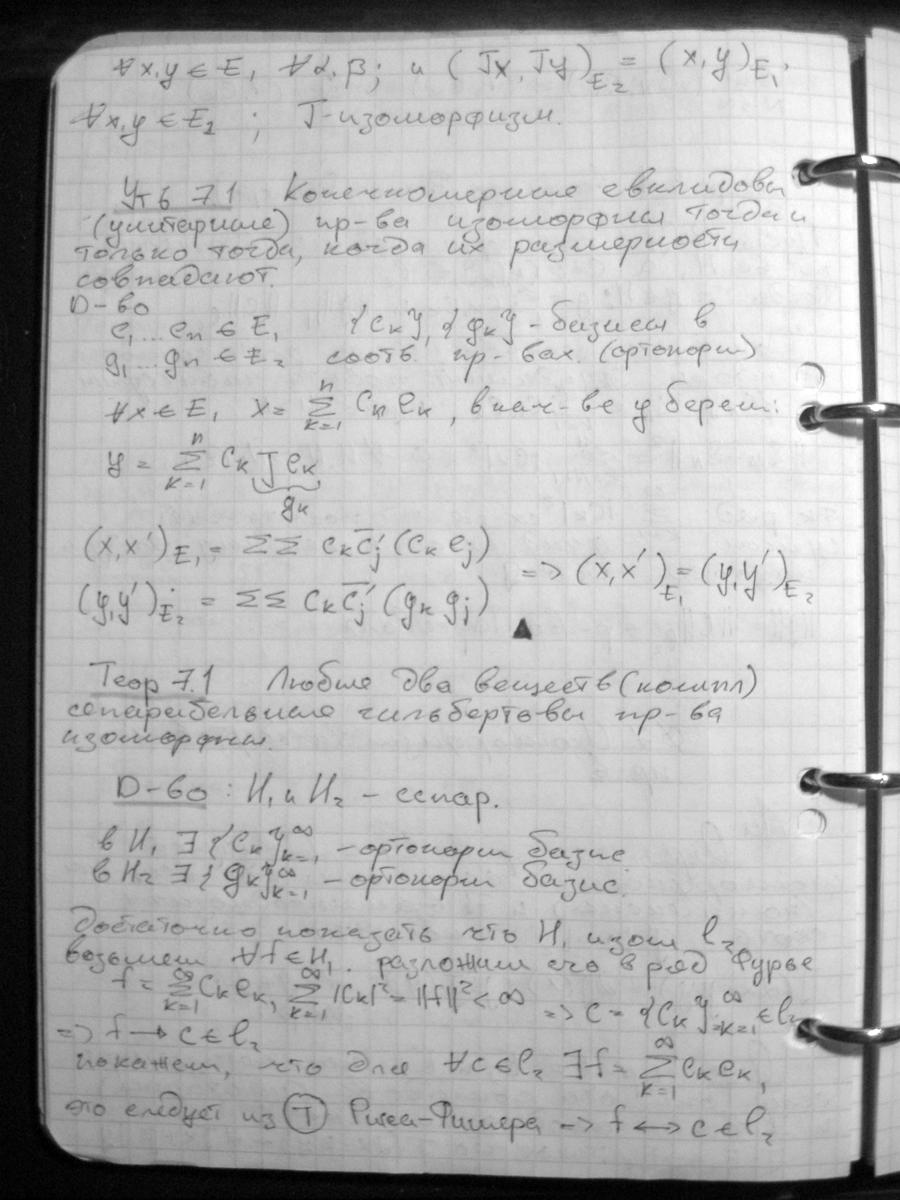 ∀x,y ∈ E₁ ∀α,β; и (Jx, Jy)_E₂ = (x,y)_E₁.
∀x,y ∈ E₁ ; J-изоморфизм.
Утв 7.1 Конечномерные евклидовы
(унитарные) пр-ва изоморфны тогда и
только тогда, когда их размерности
совпадают.
D-во
e₁...eₙ ∈ E₁ {eₖ}, {gₖ} - базисы в
g₁...gₙ ∈ E₂ соотв. пр-вах. (ортонорм)
∀x ∈ E₁ x = Σₖ₌₁ⁿ cₖ eₖ, в кач-ве y берем:
y = Σₖ₌₁ⁿ cₖ Jeₖ
gₖ
(x,x′)_E₁ = ΣΣ cₖ c̄ⱼ′ (eₖ eⱼ)
=> (x,x′)_E₁ = (y,y′)_E₂
(y,y′)_E₂ = ΣΣ cₖ c̄ⱼ′ (gₖ gⱼ)
▲
Теор 7.1 Любые два веществ (компл)
сепарабельные гильбертовы пр-ва
изоморфны.
D-во : H₁ и H₂ – сепар.
в H₁ ∃ {eₖ}ₖ₌₁^∞ – ортонорм базис
в H₂ ∃ {gₖ}ₖ₌₁^∞ – ортонорм базис.
Достаточно показать что H₁ изом l₂
возьмем ∀f ∈ H₁. разложим его в ряд Фурье
f = Σₖ₌₁^∞ cₖ eₖ, Σₖ₌₁^∞ |cₖ|² = ||f||² < ∞ => c = {cₖ}ₖ₌₁^∞ ∈ l₂
=> f → c ∈ l₂
покажем, что для ∀c ∈ l₂ ∃f = Σₖ₌₁^∞ cₖ eₖ,
это следует из Ⓣ Рисса-Фишера => f ↔ c ∈ l₂